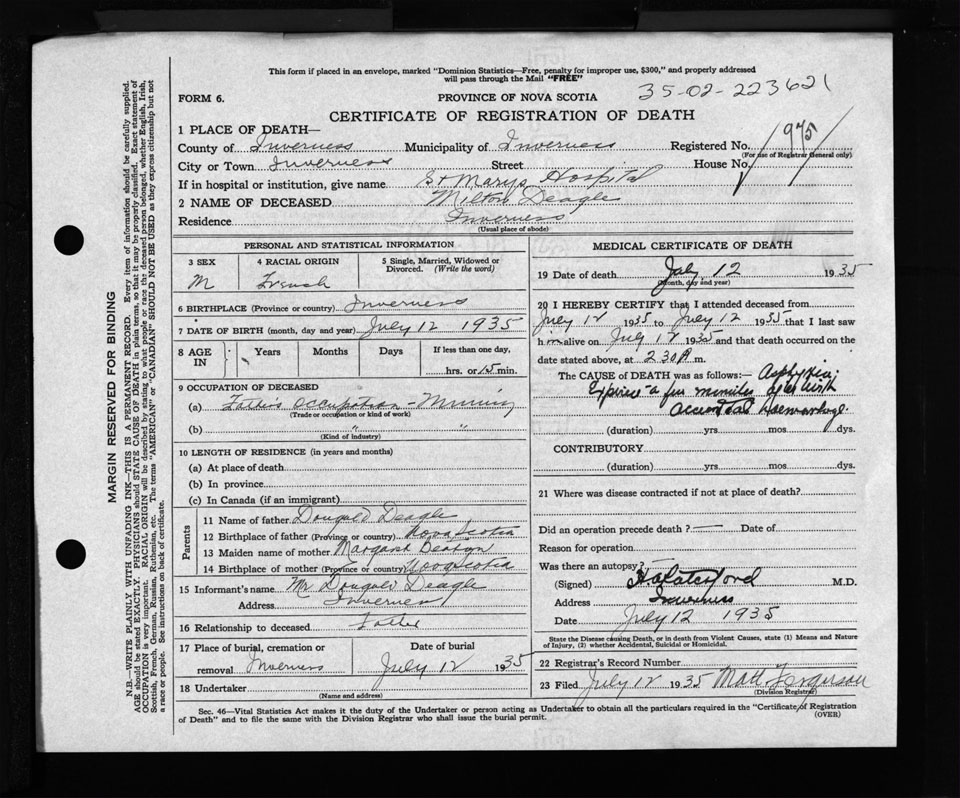 This form if placed in an envelope, marked "Dominion Statistics—Free, penalty for improper use, $300," and properly addressed
will pass through the Mail "FREE"
35-02-223621
FORM 6.
PROVINCE OF NOVA SCOTIA
CERTIFICATE OF REGISTRATION OF DEATH
1 PLACE OF DEATH—
County of Inverness Municipality of Inverness Registered No. 975
(For use of Registrar General only)
City or Town Inverness Street House No.
If in hospital or institution, give name St Marys Hospital
2 NAME OF DECEASED Milton Deagle
Residence Inverness
(Usual place of abode)
PERSONAL AND STATISTICAL INFORMATION
3 SEX 4 RACIAL ORIGIN 5 Single, Married, Widowed or Divorced. (Write the word)
M French
6 BIRTHPLACE (Province or country) Inverness
7 DATE OF BIRTH (month, day and year) July 12 1935
8 AGE IN Years Months Days If less than one day,
hrs. or 15 min.
9 OCCUPATION OF DECEASED
(a) Father's occupation - Mining
(Trade or occupation or kind of work)
(b) " "
(Kind of industry)
10 LENGTH OF RESIDENCE (in years and months)
(a) At place of death
(b) In province
(c) In Canada (if an immigrant)
Parents
11 Name of father Dougald Deagle
12 Birthplace of father (Province or country) Nova Scotia
13 Maiden name of mother Margaret Beaton
14 Birthplace of mother (Province or country) Nova Scotia
15 Informant's name Mr Dougald Deagle
Address Inverness
16 Relationship to deceased Father
17 Place of burial, cremation or removal Inverness
Date of burial
July 12 1935
18 Undertaker
(Name and address)
MEDICAL CERTIFICATE OF DEATH
19 Date of death July 12 1935
(Month, day and year)
20 I HEREBY CERTIFY that I attended deceased from
July 12 1935 to July 12 1935 that I last saw
him alive on July 12 1935 and that death occurred on the
date stated above, at 2 30 A m.
The CAUSE of DEATH was as follows:— Asphyxia;
Expired a few minutes after birth
accidental haemorrhage.
(duration) yrs mos dys.
CONTRIBUTORY
(duration) yrs mos dys.
21 Where was disease contracted if not at place of death?
Did an operation precede death? — Date of
Reason for operation
Was there an autopsy?
(Signed) M.D.
Address Inverness
Date July 12 1935
State the Disease causing Death, or in death from Violent Causes, state (1) Means and Nature
of Injury, (2) whether Accidental, Suicidal or Homicidal.
22 Registrar's Record Number
23 Filed July 12 1935 Matt Ferguson
(Division Registrar)
Sec. 46—Vital Statistics Act makes it the duty of the Undertaker or person acting as Undertaker to obtain all the particulars required in the "Certificate of Registration
of Death" and to file the same with the Division Registrar who shall issue the burial permit.
(OVER)
MARGIN RESERVED FOR BINDING
N.B.—WRITE PLAINLY WITH UNFADING INK—THIS IS A PERMANENT RECORD. Every item of information should be carefully supplied.
AGE should be stated EXACTLY. PHYSICIANS should STATE CAUSE OF DEATH in plain terms, so that it may be properly classified. Exact statement of
OCCUPATION is very important. RACIAL ORIGIN will be described by stating to what people or race the deceased person belonged, whether English, Irish,
Scottish, French, German, Russian, Ruthenian, etc. The terms "AMERICAN" or "CANADIAN" SHOULD NOT BE USED as they express citizenship but not
a race or people. See instructions on back of certificate.